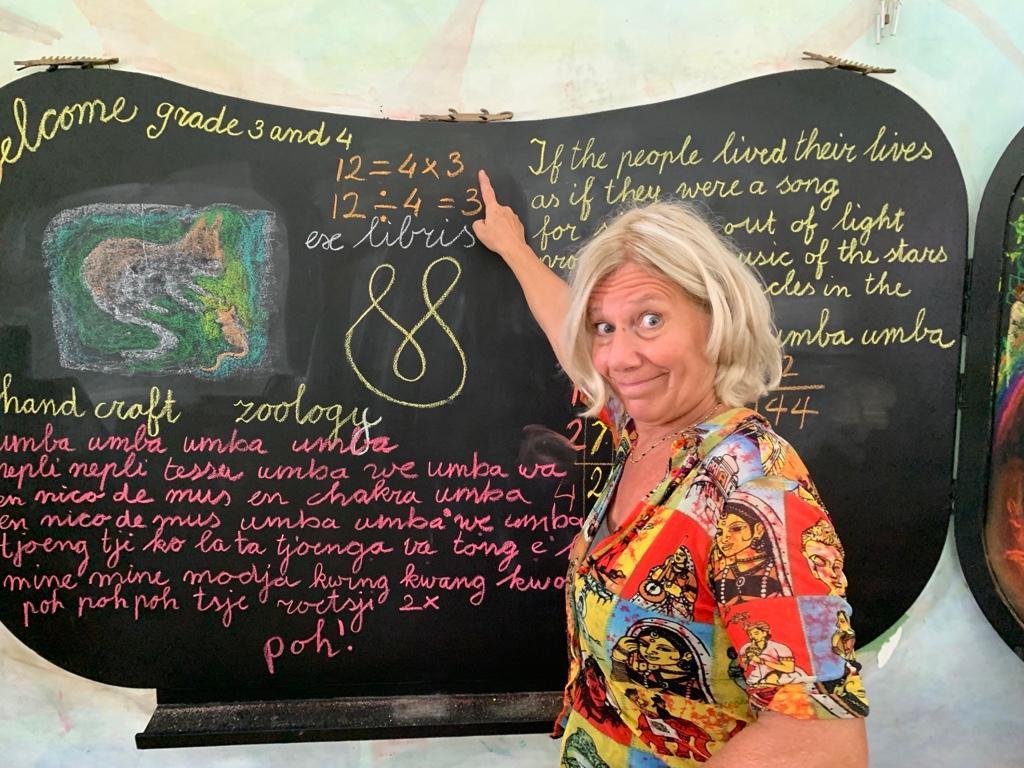 elcome grade 3 and 4
12 = 4 x 3
12 ÷ 4 = 3
exe libris
hand craft zoology
umba umba umba umba
nepli nepli tessa umba we umba wa
en nico de mus en chakra umba
en nico de mus umba umba we umba
tjoeng tji ko la ta tjoenga va tong e
mine mine modja kwing kwang kwo
poh poh poh tsje roetsji 2x
poh!
If the people lived their lives
as if they were a song
for out of light
usic of the stars
cles in the
umba umba
2
44
27
4 2